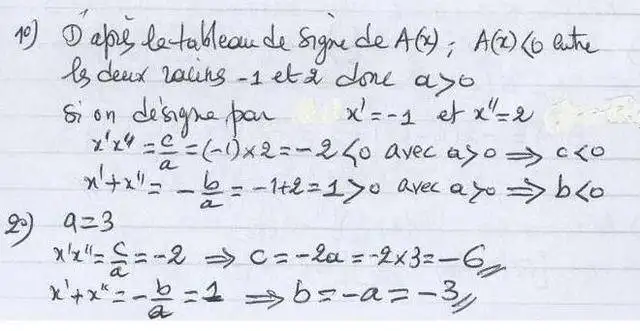 1°) D'après le tableau de signe de A(x) ; A(x)<0 entre
les deux racines -1 et 2 donc a>0
si on désigne par x'=-1 et x''=2
x'x''=c/a=(-1)×2=-2<0 avec a>0 ⟹ c<0
x'+x''=-b/a=-1+2=1>0 avec a>0 ⟹ b<0
2°) a=3
x'x''=c/a=-2 ⟹ c=-2a=-2×3=-6
x'+x''=-b/a=1 ⟹ b=-a=-3